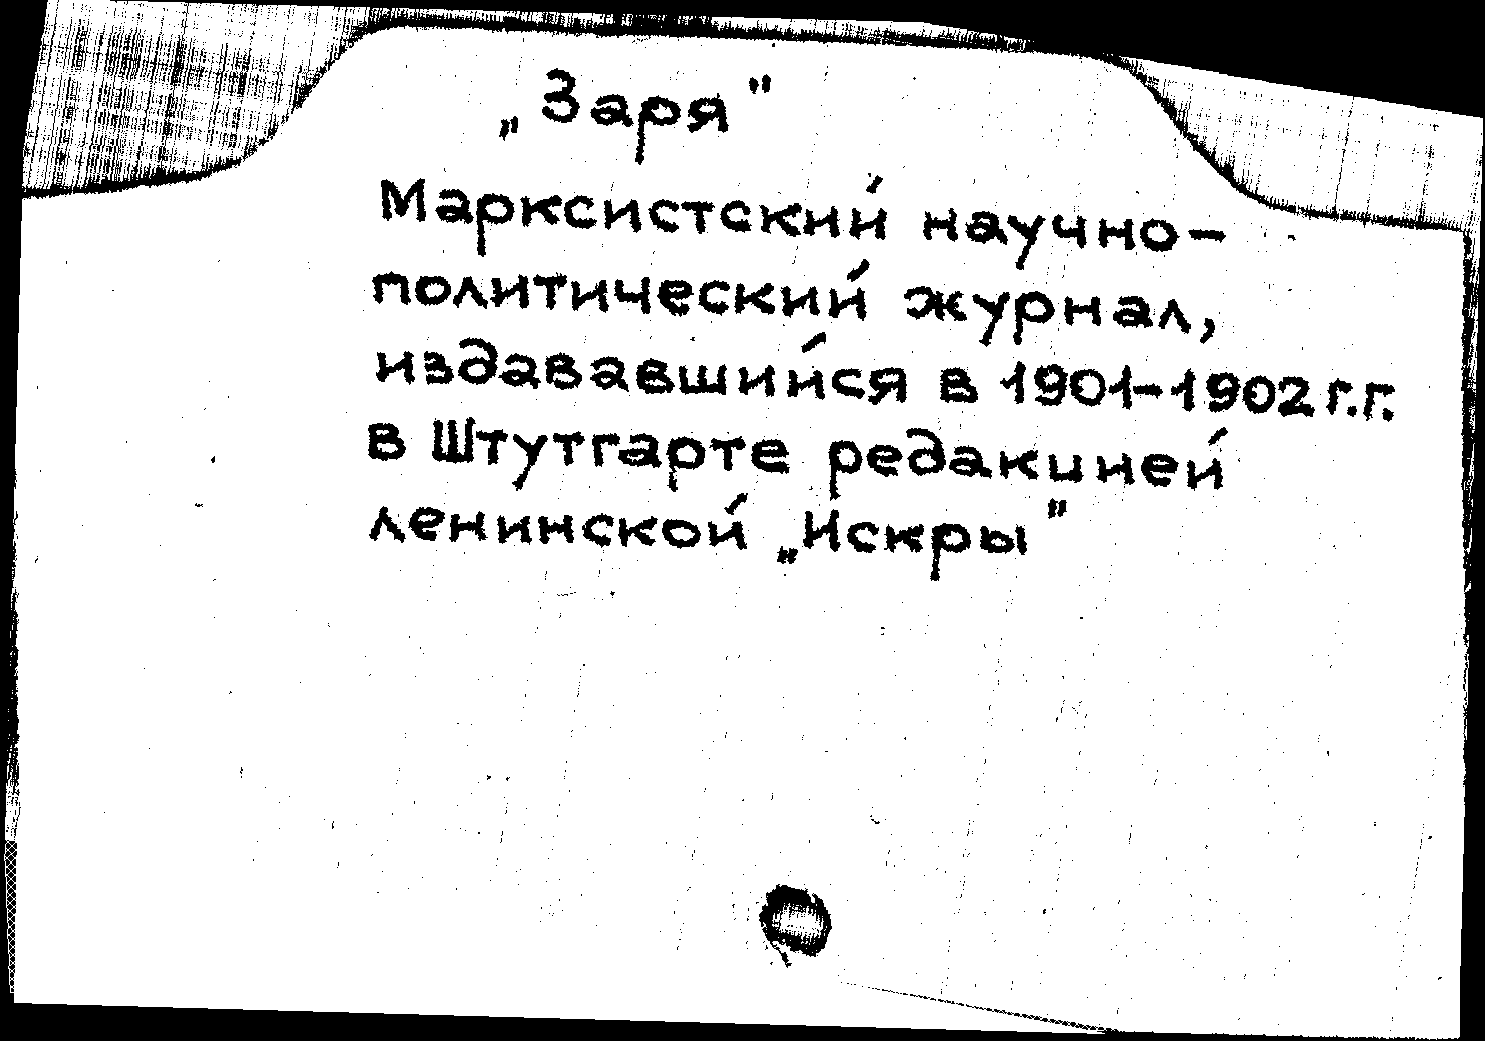 „Заря"
Марксистский научно-
политический журнал,
издававшийся в 1901-1902 г.г.
в Штутгарте редакцией
ленинской „Искры"